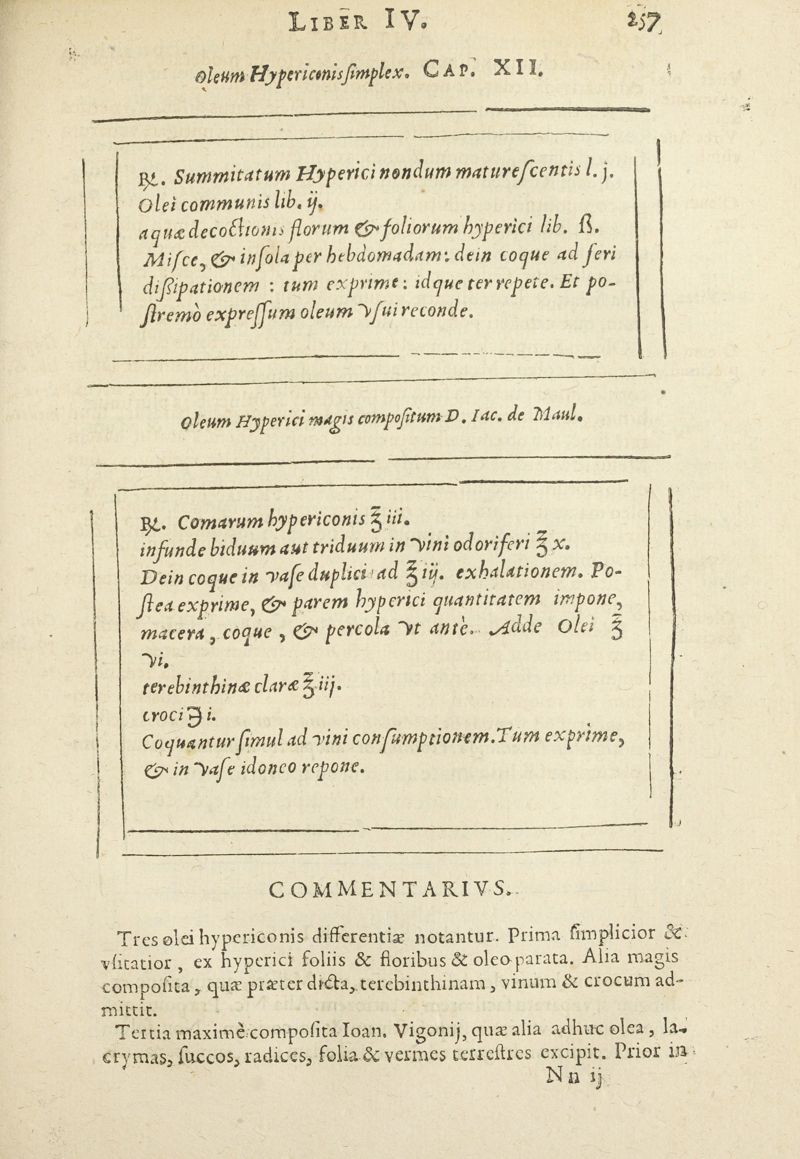 LIBER IV. 257
Oleum Hypericonis ſimplex. CAP. XII.
℞. Summitatum Hyperici nondum matureſcentis l. j.
Olei communis lib. ij.
aquæ decoctionis florum & foliorum hyperici lib. ß.
Miſce, & inſola per hebdomadam: dein coque ad ſeri
diſſipationem : tum exprime: idque ter repete. Et po-
ſtremò expreſſum oleum vſui reconde.
Oleum Hyperici magis compoſitum D. Iac. de Maul.
℞. Comarum hypericonis ℥ iii.
infunde biduum aut triduum in vini odoriferi ℥ x.
Dein coque in vaſe duplici ad ℥ iij. exhalationem. Po-
ſtea exprime, & parem hyperici quantitatem impone,
macera, coque , & percola vt antè. Adde Olei ℥
vi.
terebinthinæ claræ ℥ iij.
croci ℈ i.
Coquantur ſimul ad vini conſumptionem. Tum exprime,
& in vaſe idoneo repone.
COMMENTARIVS.
Tres olei hypericonis differentiæ notantur. Prima ſimplicior &
vſitatior , ex hyperici foliis & floribus & oleo parata. Alia magis
compoſita, quæ præter dicta, terebinthinam , vinum & crocum ad-
mittit.
Tertia maximè compoſita Ioan. Vigonij, quæ alia adhuc olea , la-
crymas, ſuccos, radices, folia & vermes terreſtres excipit. Prior in
Nn ij